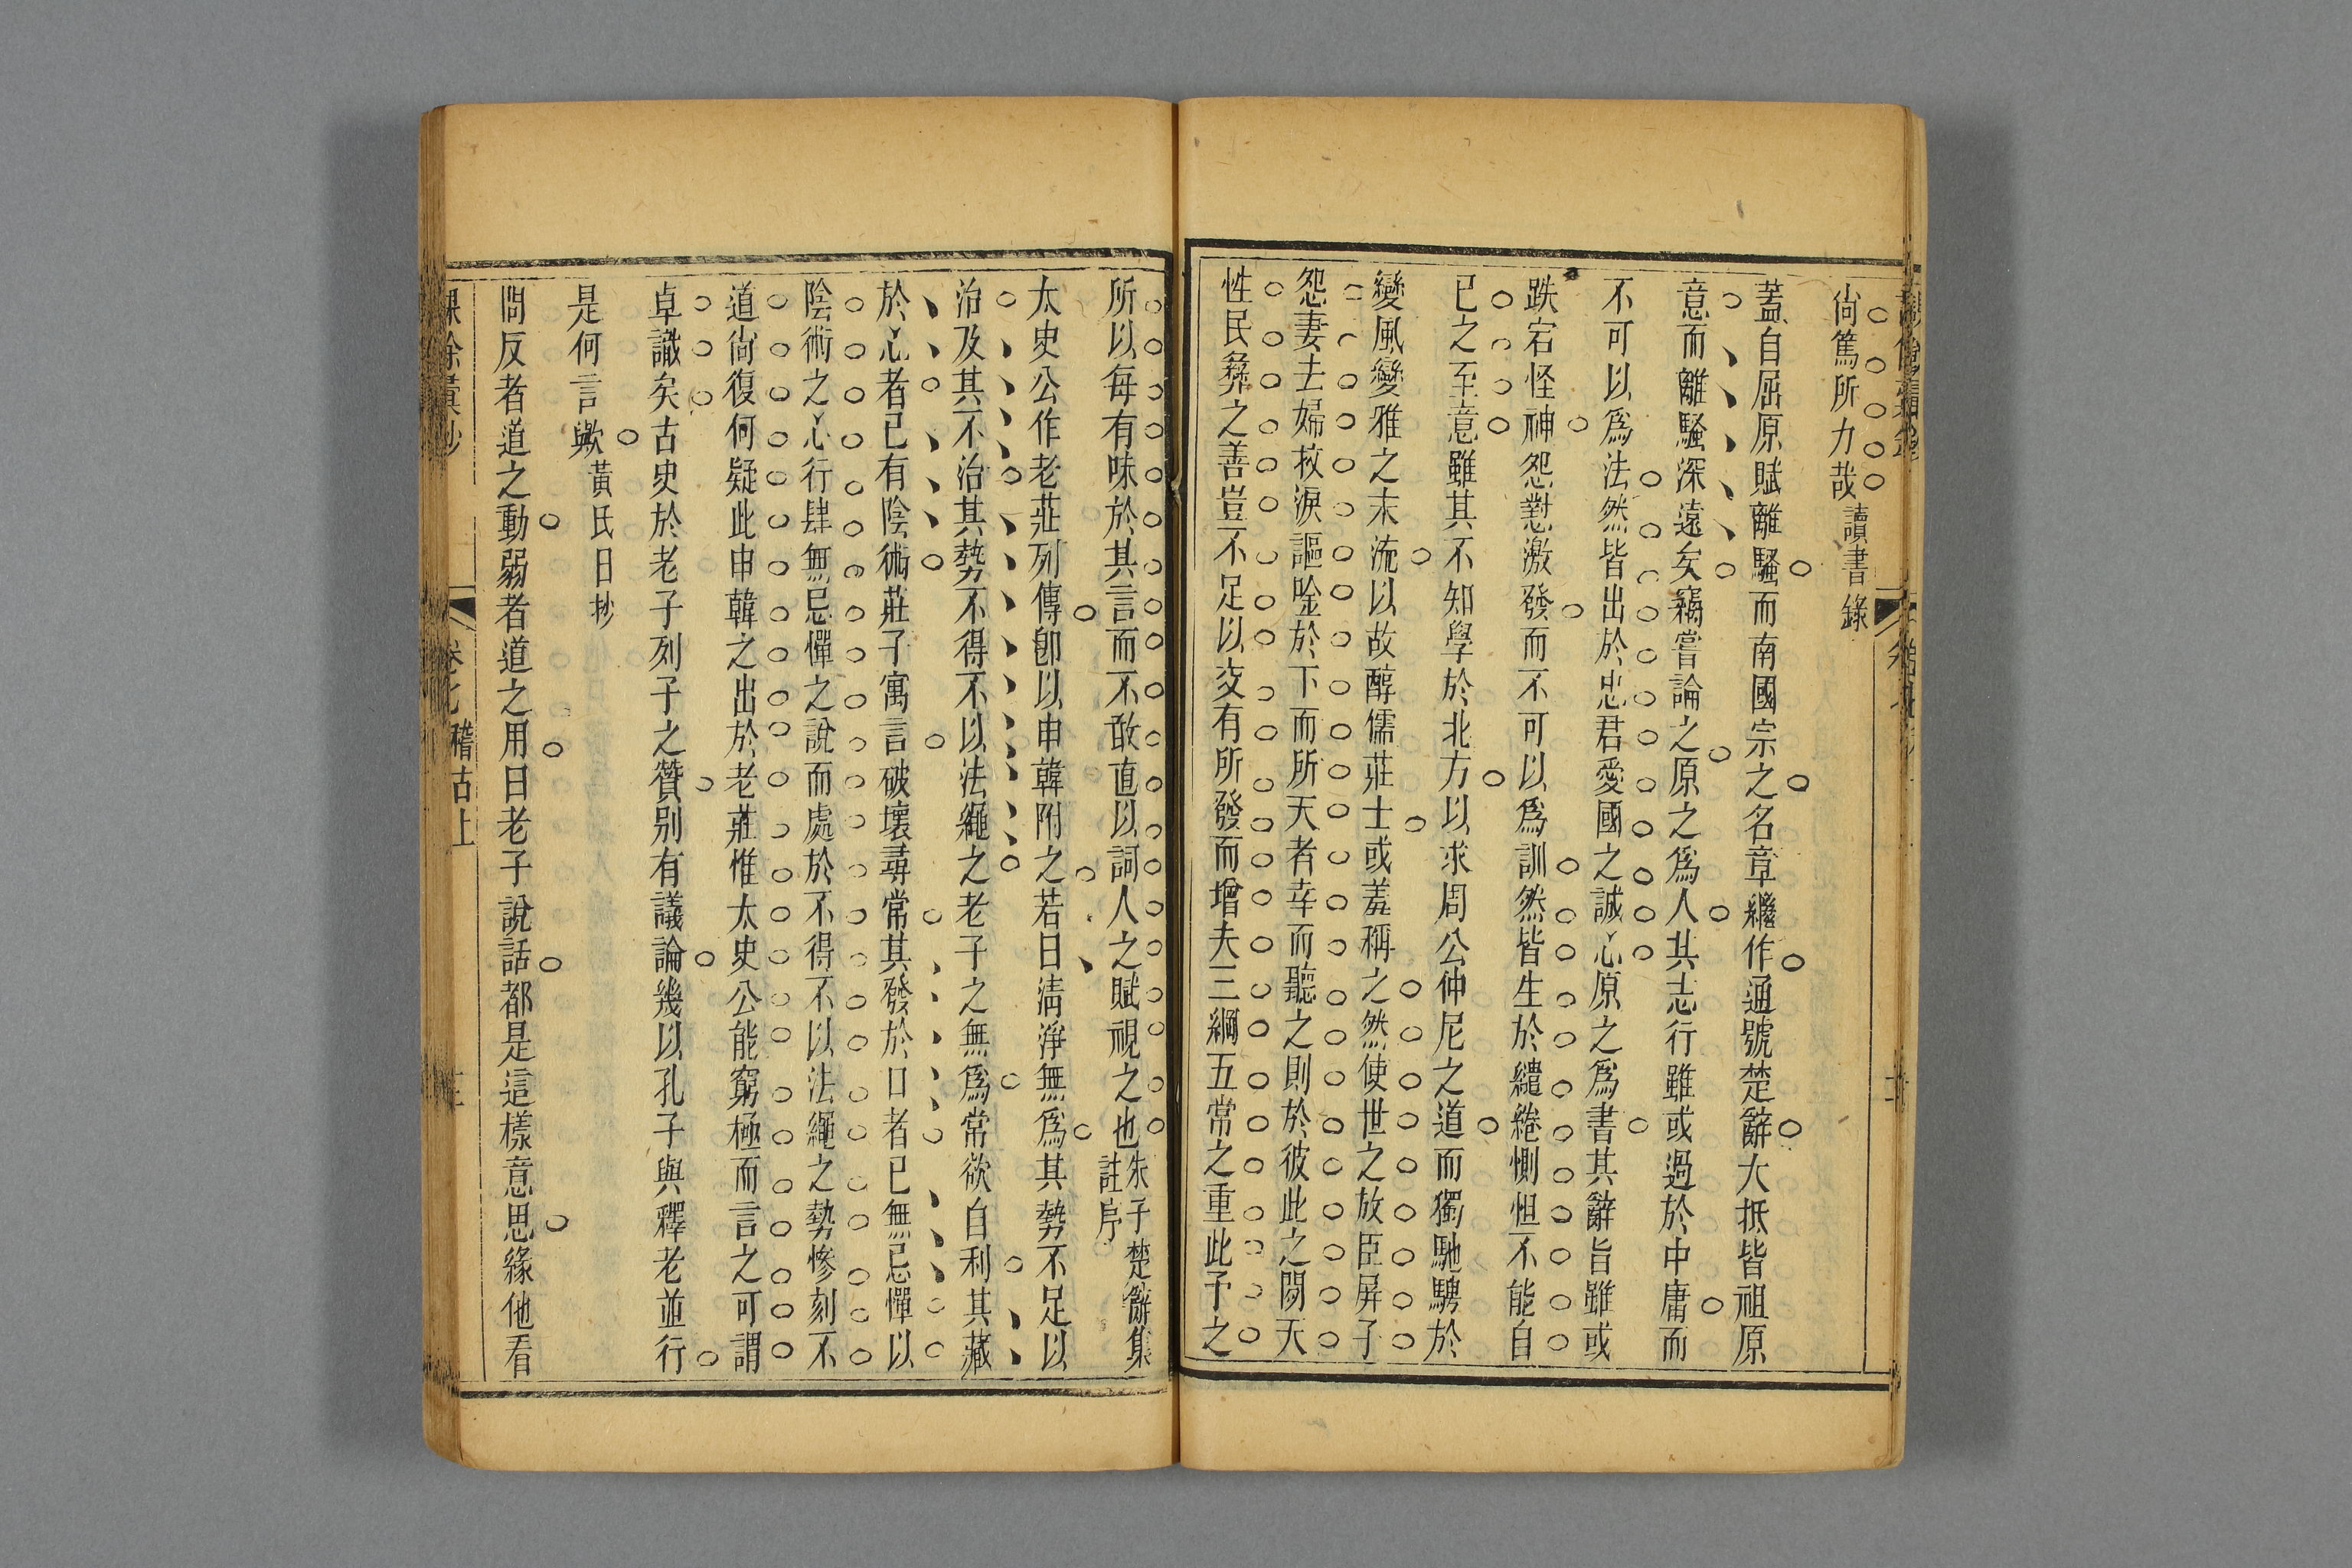 尚篤所力哉讀書錄
蓋自屈原賦離騷而南國宗之名章繼作通號楚辭大抵皆祖原
意而離騷深遠矣竊嘗論之原之爲人其志行雖或過於中庸而
不可以爲法然皆出於忠君愛國之誠心原之爲書其辭旨雖或
跌宕怪神怨懟激發而不可以爲訓然皆生於繾綣惻怛不能自
已之至意雖其不知學於北方以求周公仲尼之道而獨馳騁於
變風變雅之末流以故醇儒莊士或羞稱之然使世之放臣屏子
怨妻去婦抆淚謳唫於下而所天者幸而聽之則於彼此之間天
性民彞之善豈不足以交有所發而增夫三綱五常之重此予之
所以每有味於其言而不敢直以詞人之賦視之也朱子楚辭集
註序
太史公作老莊列傳卽以申韓附之若曰清淨無爲其勢不足以
治及其不治其勢不得不以法繩之老子之無爲常欲自利其藏
於心者已有陰術莊子寓言破壞尋常其發於口者已無忌憚以
陰術之心行肆無忌憚之說而處於不得不以法繩之勢慘刻不
道尙復何疑此申韓之出於老莊惟太史公能窮極而言之可謂
卓識矣古史於老子列子之贊别有議論幾以孔子與釋老並行
是何言歟黃氏日抄
問反者道之動弱者道之用曰老子說話都是這樣意思緣他看
卷七 稽古上